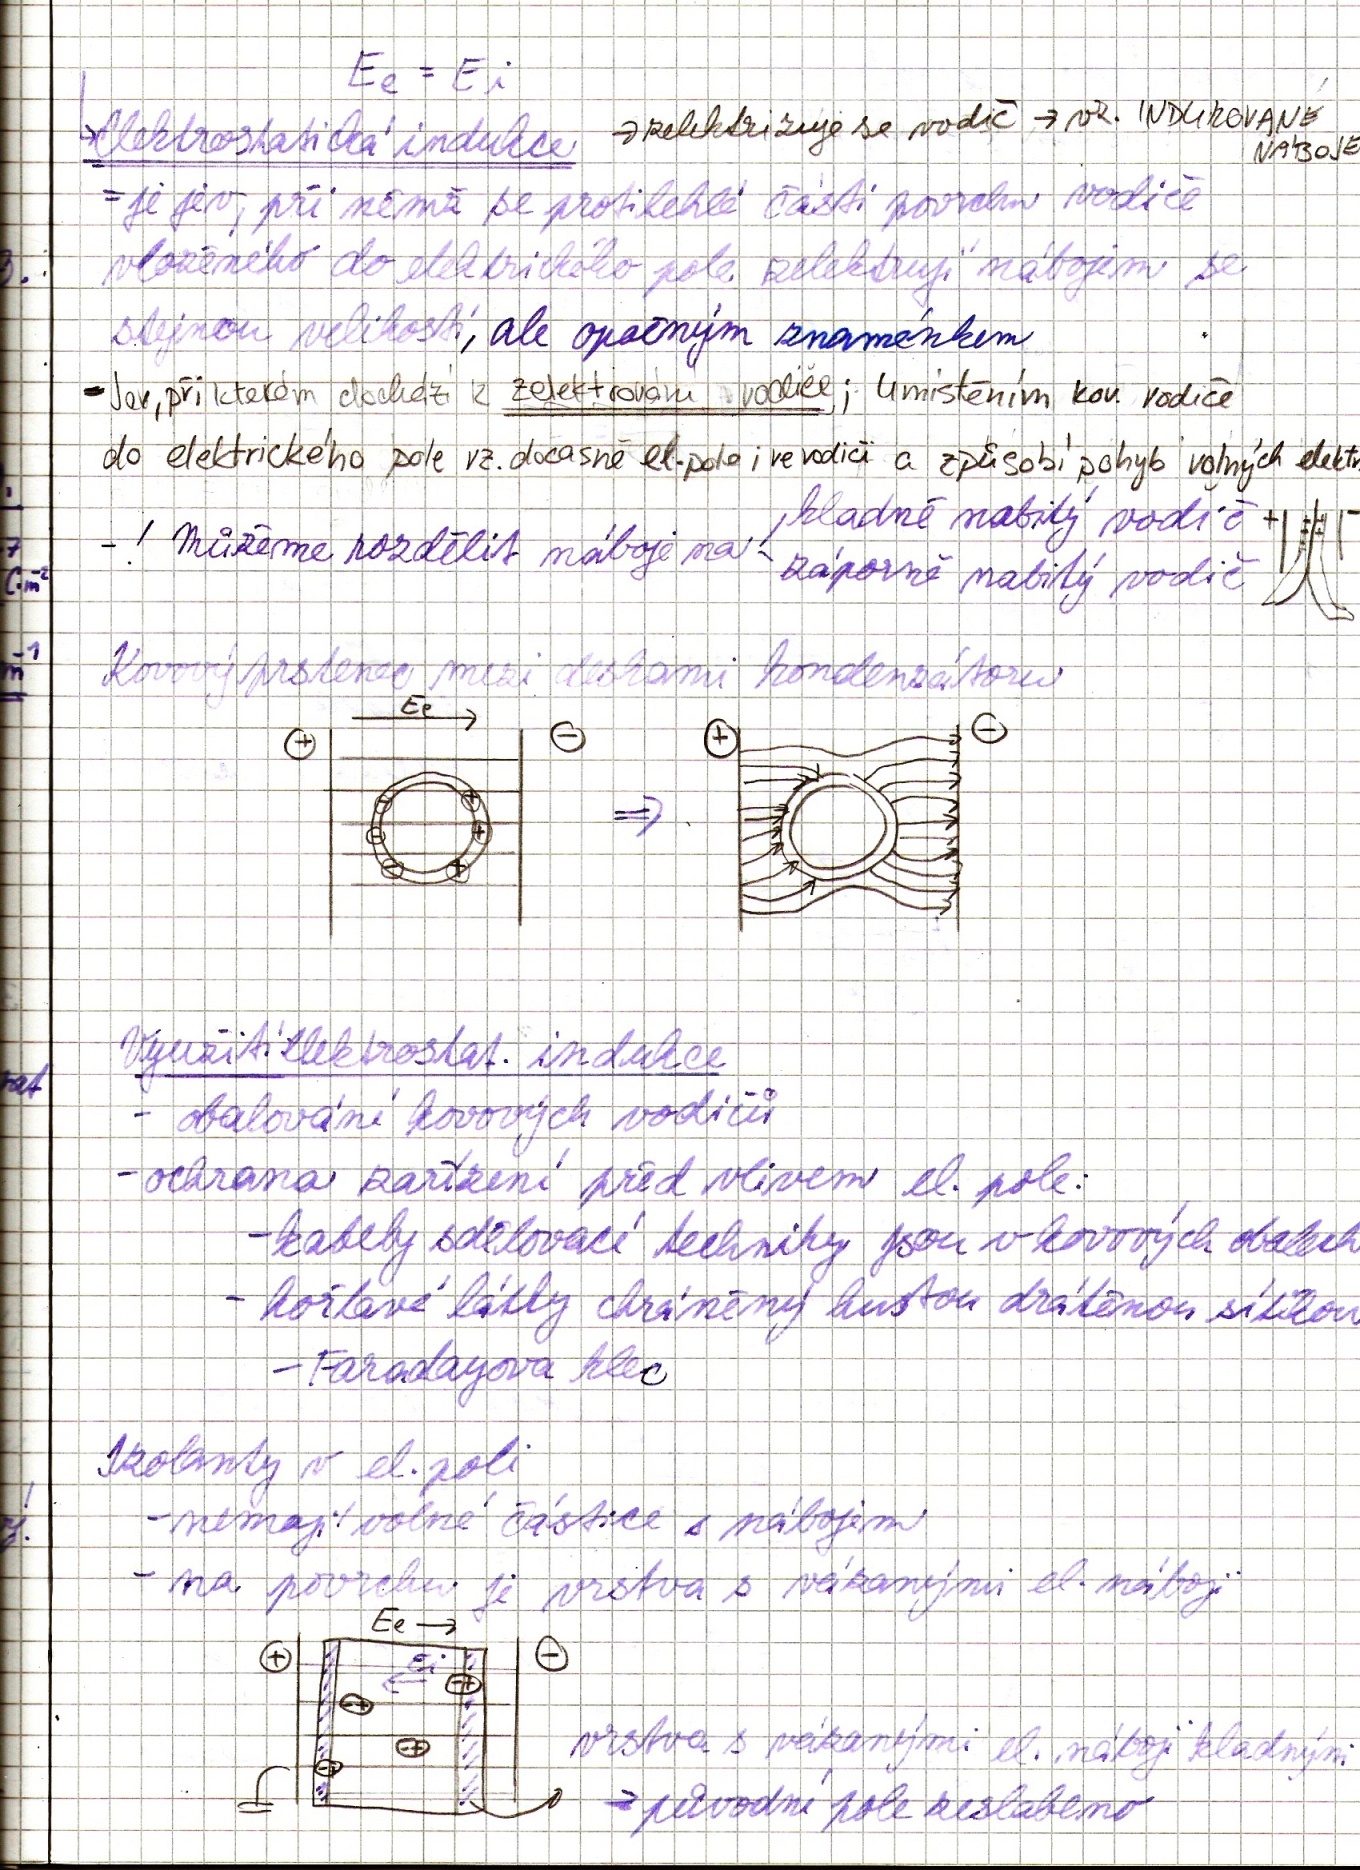 Ee = Ei
Elektrostatická indukce → zelektrizuje se vodič → vz. INDUKOVANÉ
NÁBOJE
= je jev, při němž se protilehlé části povrchu vodiče
3.
vloženého do elektrického pole zelektrují nábojem se
stejnou velikostí, ale opačným znaménkem
- Jev, při kterém dochází k zelektrování vodiče; Umístěním kov. vodiče
do elektrického pole vz. dočasně el. pole i ve vodiči a způsobí pohyb volných elektr
- ! Můžeme rozdělit náboje na kladně nabitý vodič
záporně nabitý vodič
+ -
7
C·m⁻²
m⁻¹
Kovový prstenec mezi deskami kondenzátoru
Ee
+ - + -
- +
- +
- +
⇒
Využití elektrostat. indukce
- obalování kovových vodičů
- ochrana zařízení před vlivem el. pole:
- kabely sdělovací techniky jsou v kovových obalech
- hořlavé látky chráněny hustou drátěnou síťkou
- Faradayova klec
Izolanty v el. poli
- nemají volné částice s nábojem
- na povrchu je vrstva s vázanými el. náboji
Ee →
+ Ei -
-+
-+
-+
-+
vrstva s vázanými el. náboji kladnými
→ původní pole zeslabeno